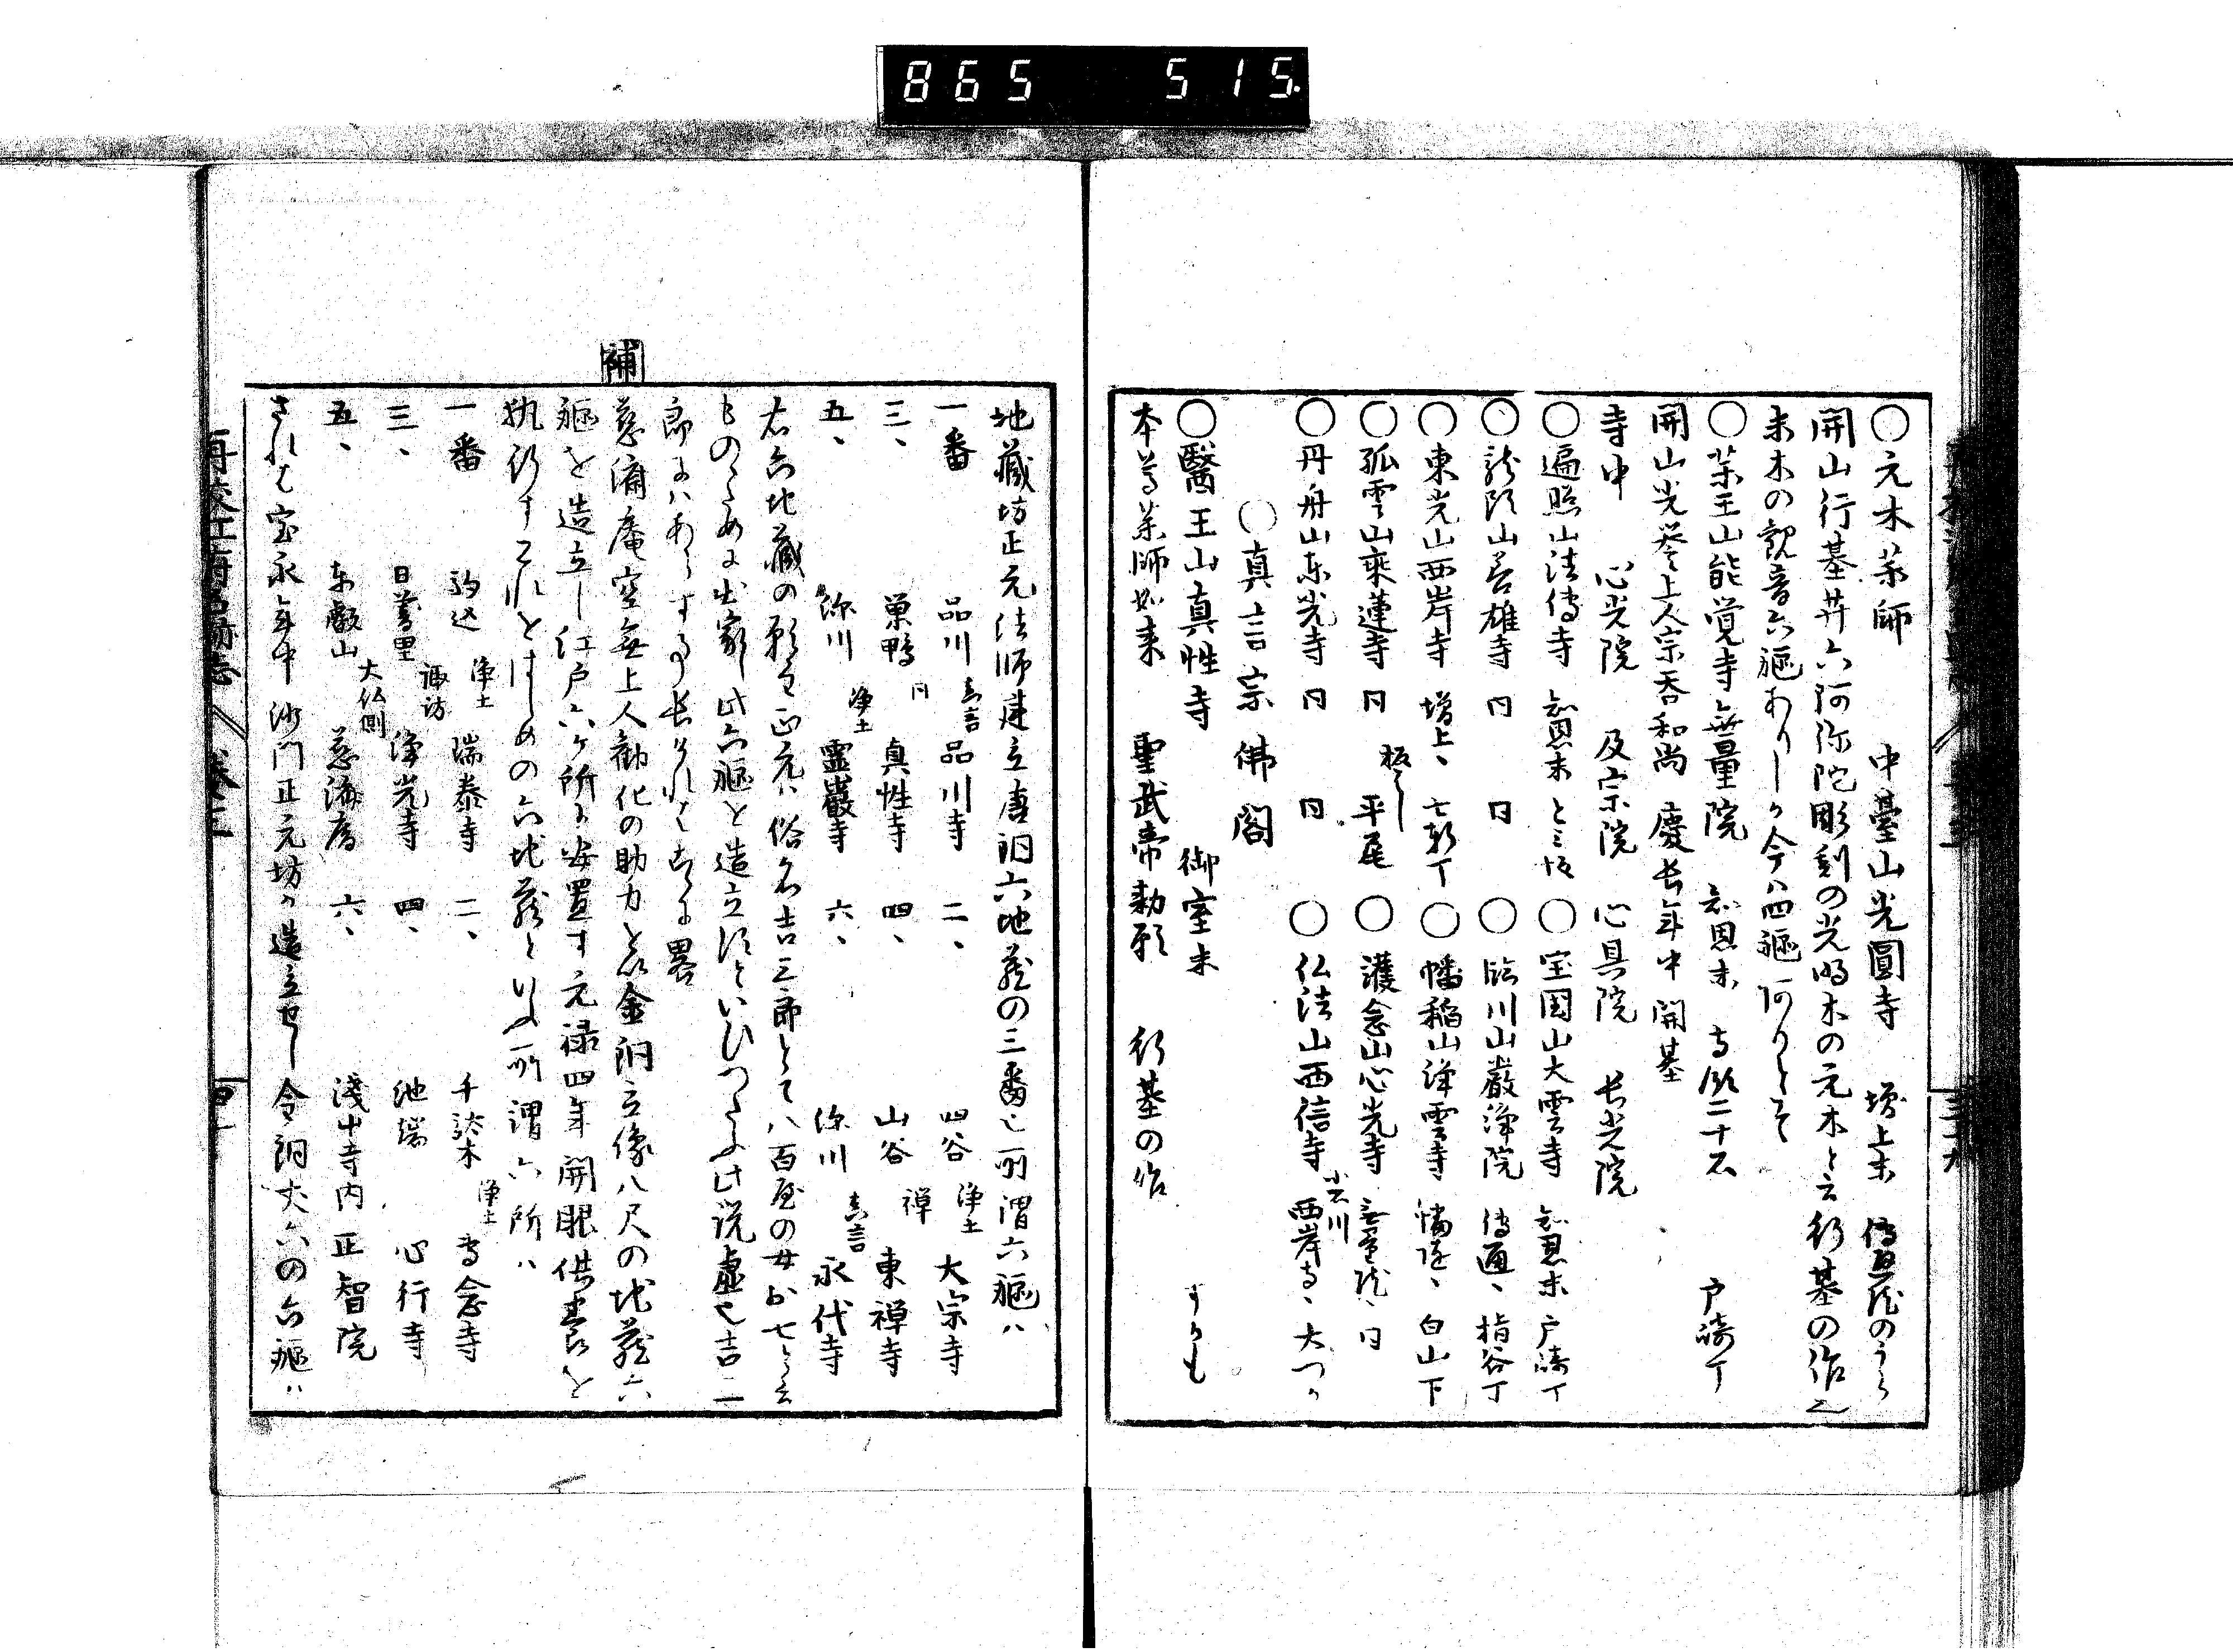 865 515.
○元木薬師 中臺山光圓寺 増上末 傳通院のうら
開山行基并六阿弥陀彫刻の光明木の元木と云行基の作也
末木の観音六躯ありしか今ハ四躯
○薬王山能覚寺無量院 知恩末 寺領二十石 戸崎丁
開山光誉上人宗呑和尚 慶長年中開基
寺中 心光院 及宗院 心具院 長光院
○遍照山法傳寺 知恩末 とミ坂 ○宝国山大雲寺 知恩末 戸崎丁
○龍頭山善雄寺 同 同 ○臨川山巌浄院 傳通、指谷丁
○東光山西岸寺 増上、七軒丁 ○幡稲山浄雲寺 幡随、白山下
○孤雲山乗蓮寺 同 板はし 平尾 ○護念山心光寺 無量院、同
○丹舟山東光寺 同 同 ○仏法山西信寺 小石川 西岸寺、大つか
○真言宗佛閣
○醫王山真性寺 御室末 すかも
本尊薬師如来 聖武帝勅願 行基の作
地蔵坊正元法師建立唐銅六地蔵の三番也所謂六躯ハ
一番 品川 真言 品川寺 二、 四谷 浄土 大宗寺
三、 巣鴨 同 真性寺 四、 山谷 禅 東禅寺
五、 深川 浄土 霊巌寺 六、 深川 真言 永代寺
右六地蔵の願主正元ハ俗名吉三郎とてハ百屋の女お七と云
ものゝために出家し此六躯を造立すといひつたふ此説虚也吉三
郎にハあらす事長けれはこゝに畧
補
慈済庵空無上人勧化の助力を以金銅立像八尺の地蔵六
躯を造立し江戸六ケ所に安置す元禄四年開眼供養を
執行すこれをはしめの六地蔵といふ所謂六所ハ
一番 駒込 浄土 瑞泰寺 二、 千駄木 浄土 専念寺
三、 日暮里 諏訪 浄光寺 四、 池端 心行寺
五、 東叡山 大仏側 慈済庵 六、 浅草寺内 正智院
されは宝永年中沙門正元坊か造立せし金銅丈六の六躯ハ
再校江戸名跡志 巻之三